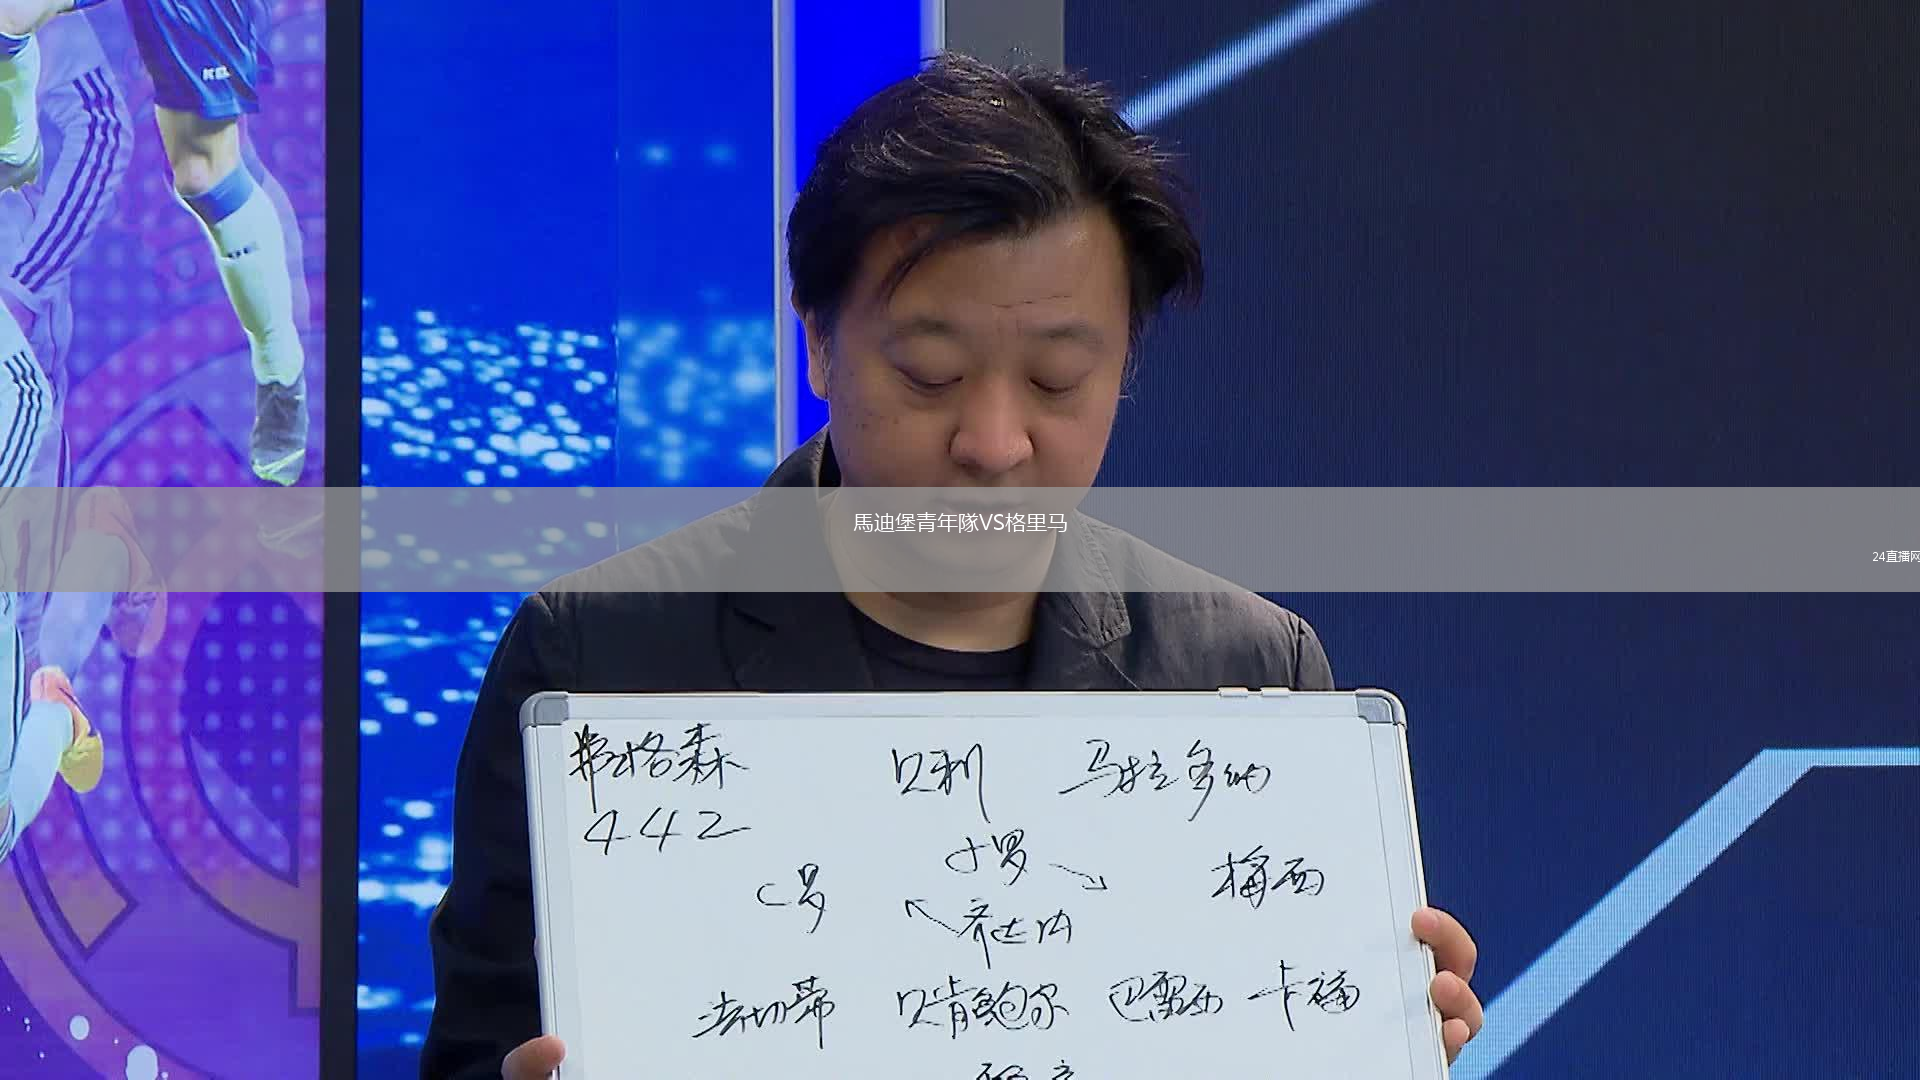 馬迪堡青年隊VS格里马
24直播网
弗格森 贝利 马拉多纳
442
小罗
C罗 梅西
齐达内
法切蒂 贝肯鲍尔 巴雷西 卡福